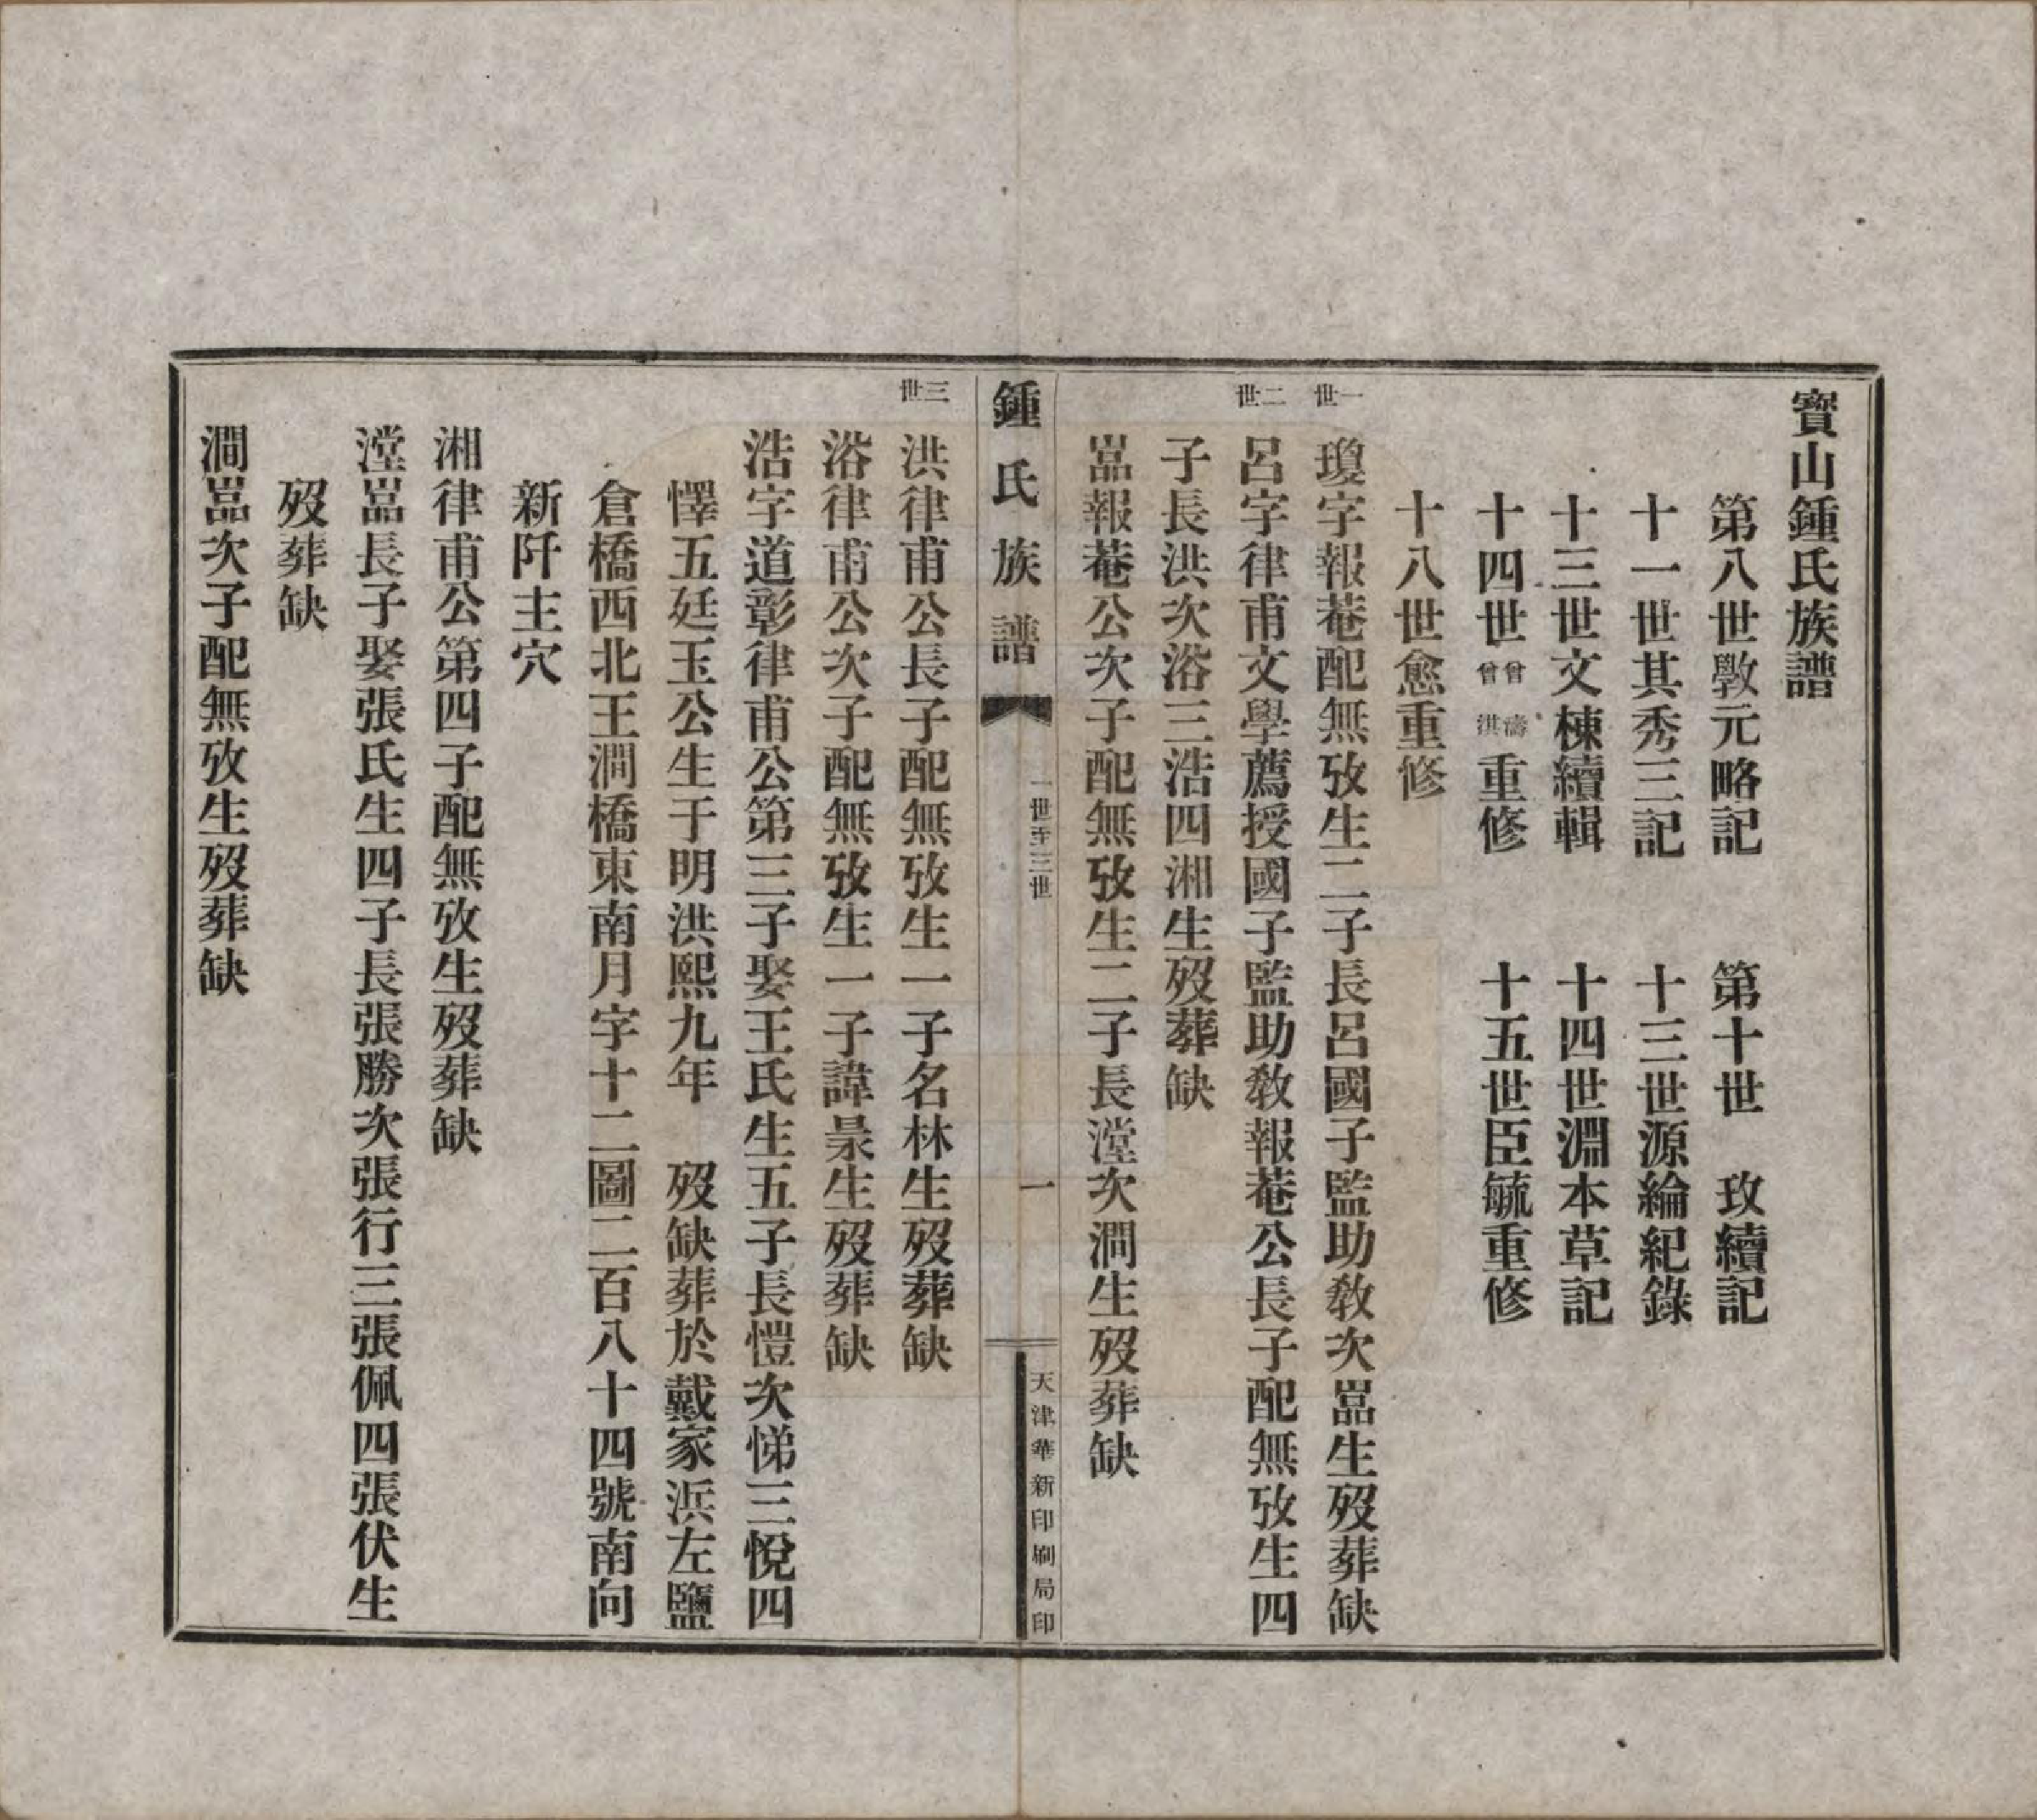 寶山鍾氏族譜
第八世斅元略記　第十世　玫續記
十一世其秀三記　十三世源綸紀錄
十三世文棟續輯　十四世淵本草記
十四世曾濤曾洪重修　十五世臣毓重修
十八世愈重修
一世
瓊字報菴配無攷生二子長呂國子監助教次嵓生歿葬缺
二世
呂字律甫文學薦授國子監助教報菴公長子配無攷生四
子長洪次浴三浩四湘生歿葬缺
嵓報菴公次子配無攷生二子長漟次澗生歿葬缺
鍾氏族譜
一世至三世
一
天津華新印刷局印
三世
洪律甫公長子配無攷生一子名林生歿葬缺
浴律甫公次子配無攷生一子諱杲生歿葬缺
浩字道彰律甫公第三子娶王氏生五子長愷次悌三悅四
懌五廷玉公生于明洪熙九年　歿缺葬於戴家浜左鹽
倉橋西北王澗橋東南月字十二圖二百八十四號南向
新阡主穴
湘律甫公第四子配無攷生歿葬缺
漟嵓長子娶張氏生四子長張勝次張行三張佩四張伏生
歿葬缺
澗嵓次子配無攷生歿葬缺